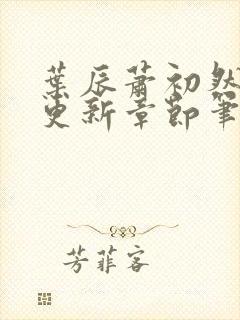 葉辰蕭初然
更新章節筆
芳菲客